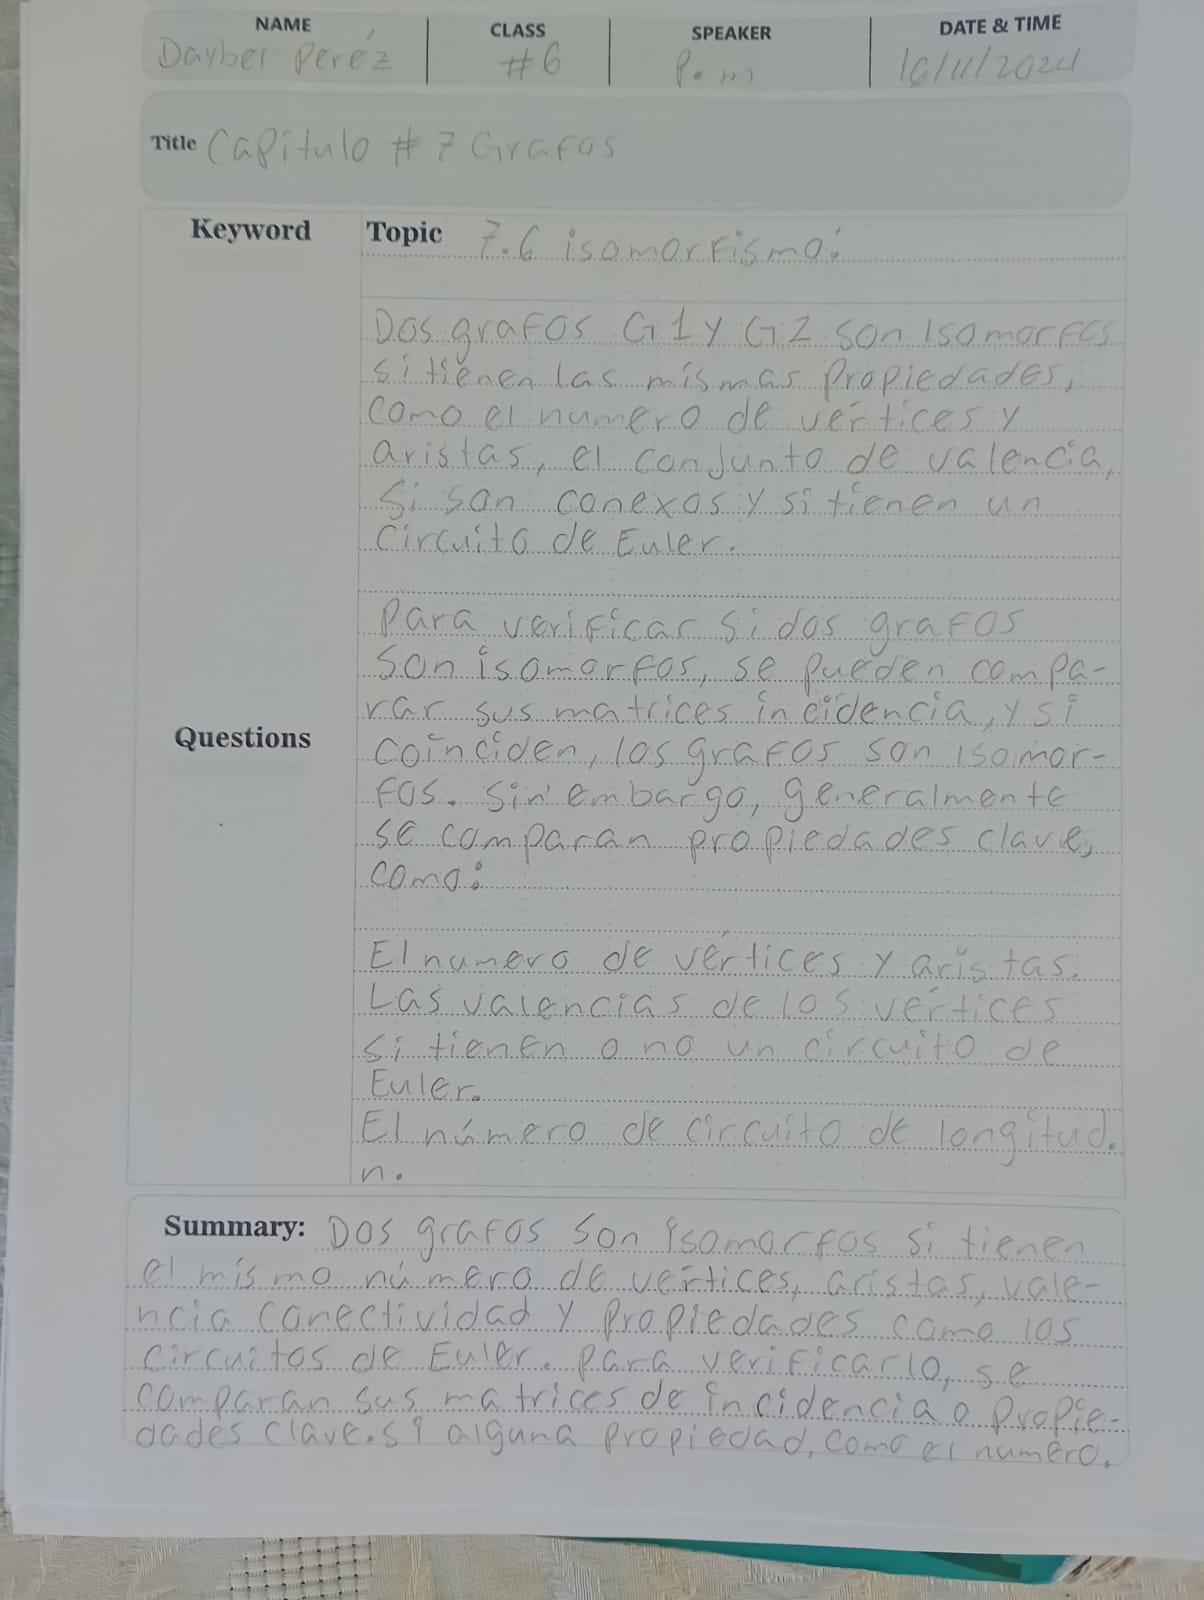 NAME CLASS SPEAKER DATE & TIME
Daybel Peréz #6 P.m 16/11/2024
Title Capitulo #7 Grafos
Keyword Topic 7.6 isomorfismo:
Dos grafos G1 y G2 son Isomorfos
si tienen las mismas Propiedades,
como el numero de vértices y
aristas, el conjunto de valencia,
Si son conexos y si tienen un
Circuito de Euler.
Para verificar si dos grafos
son isomorfos, se pueden compa-
rar sus matrices incidencia, y si
Questions
coinciden, los grafos son isomor-
fos. Sin embargo, generalmente
se comparan propiedades clave,
como:
El numero de vértices y aristas.
Las valencias de los vértices
Si tienen o no un circuito de
Euler.
El número de circuito de longitud.
n.
Summary: Dos grafos son isomorfos si tienen
el mismo número de vértices, aristas, vale-
ncia conectividad y Propiedades como los
circuitos de Euler. para verificarlo, se
comparan sus matrices de incidencia o propie-
dades clave. si alguna propiedad, como el numero.